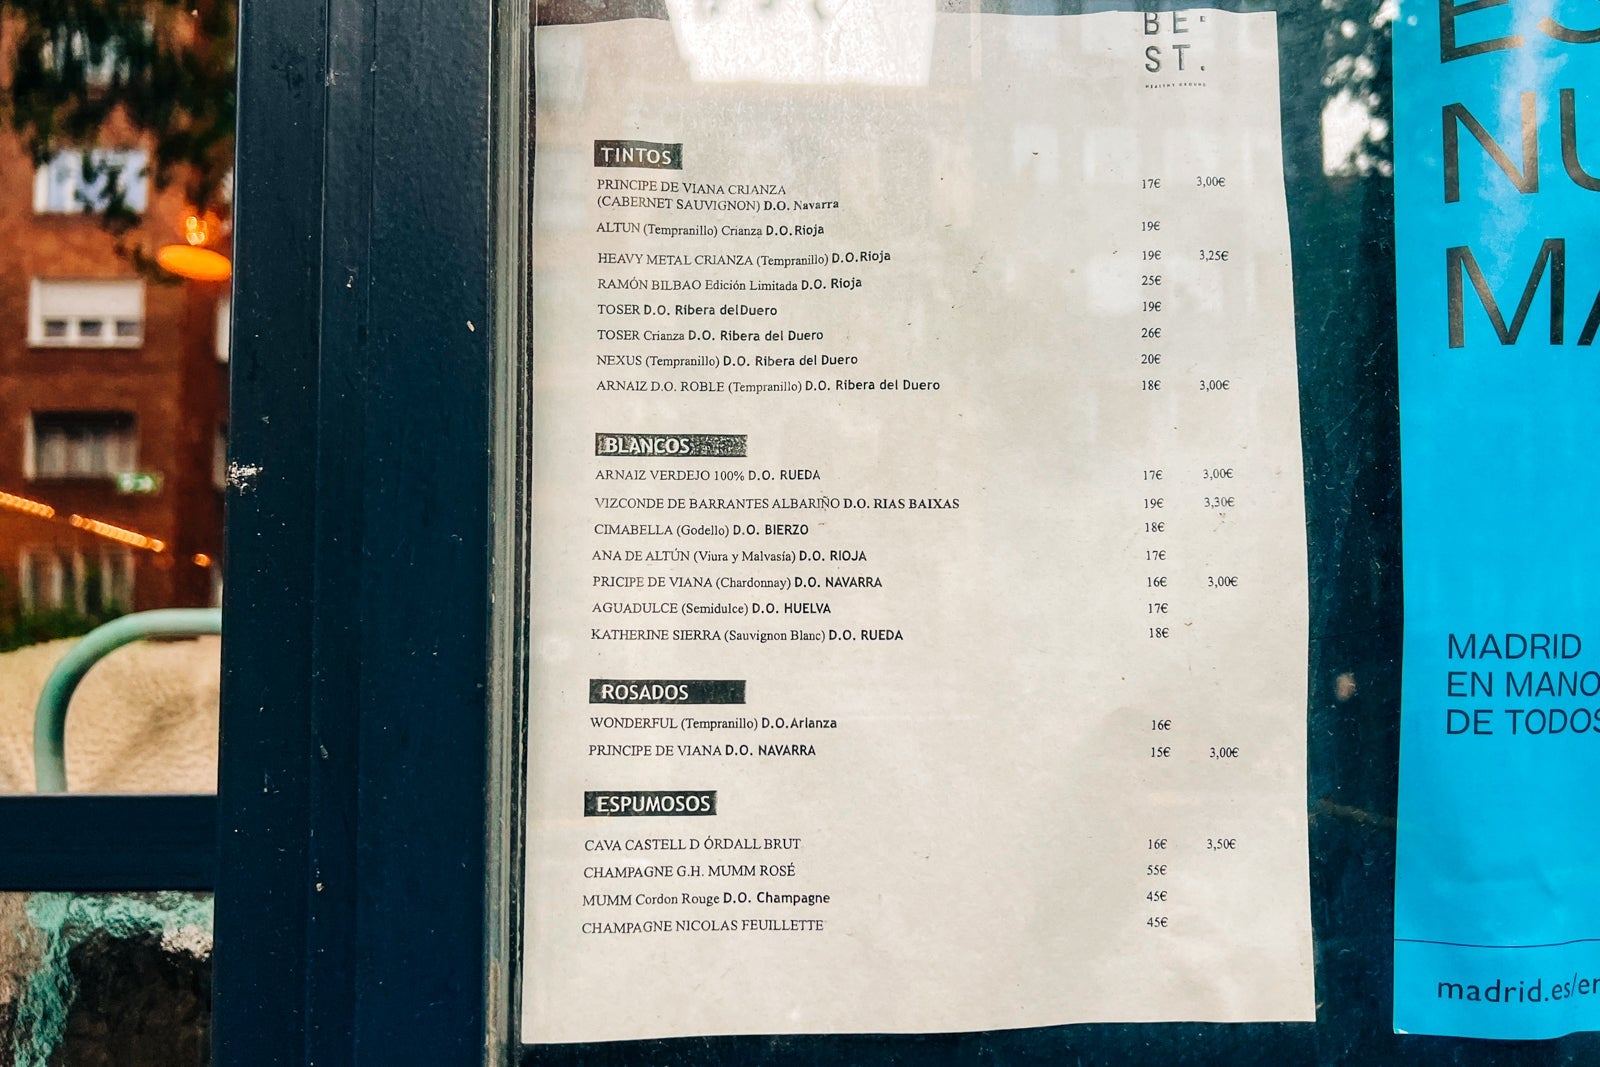 BE.
ST.
HEALTHY GROUND
TINTOS
PRINCIPE DE VIANA CRIANZA 17€ 3,00€
(CABERNET SAUVIGNON) D.O. Navarra
ALTUN (Tempranillo) Crianza D.O.Rioja 19€
HEAVY METAL CRIANZA (Tempranillo) D.O.Rioja 19€ 3,25€
RAMÓN BILBAO Edición Limitada D.O. Rioja 25€
TOSER D.O. Ribera delDuero 19€
TOSER Crianza D.O. Ribera del Duero 26€
NEXUS (Tempranillo) D.O. Ribera del Duero 20€
ARNAIZ D.O. ROBLE (Tempranillo) D.O. Ribera del Duero 18€ 3,00€
BLANCOS
ARNAIZ VERDEJO 100% D.O. RUEDA 17€ 3,00€
VIZCONDE DE BARRANTES ALBARIÑO D.O. RIAS BAIXAS 19€ 3,30€
CIMABELLA (Godello) D.O. BIERZO 18€
ANA DE ALTÚN (Viura y Malvasía) D.O. RIOJA 17€
PRICIPE DE VIANA (Chardonnay) D.O. NAVARRA 16€ 3,00€
AGUADULCE (Semidulce) D.O. HUELVA 17€
KATHERINE SIERRA (Sauvignon Blanc) D.O. RUEDA 18€
ROSADOS
WONDERFUL (Tempranillo) D.O.Arlanza 16€
PRINCIPE DE VIANA D.O. NAVARRA 15€ 3,00€
ESPUMOSOS
CAVA CASTELL D ÓRDALL BRUT 16€ 3,50€
CHAMPAGNE G.H. MUMM ROSÉ 55€
MUMM Cordon Rouge D.O. Champagne 45€
CHAMPAGNE NICOLAS FEUILLETTE 45€
ES
NU
MA
MADRID
EN MANO
DE TODOS
madrid.es/en